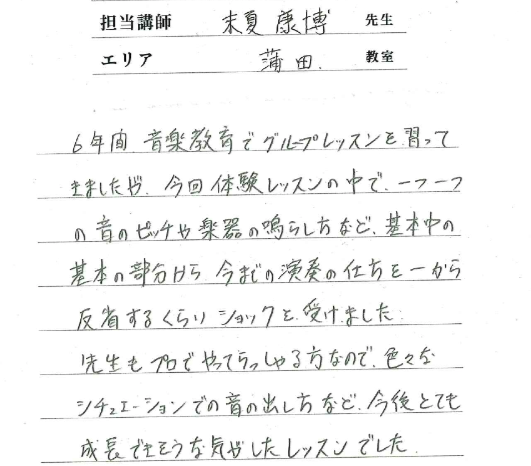 担当講師 末夏 康博 先生
エリア 蒲田. 教室
6年間 音楽教育でグループレッスンを習って
きましたが、今回体験レッスンの中で、一つ一つ
の音のピッチや楽器の鳴らし方など、基本中の
基本の部分から 今までの演奏の仕方を一から
反省するくらい ショックを受けました.
先生もプロでやってらっしゃる方なので、色々な
シチュエーションでの音の出し方など、今後とても
成長できそうな気がしたレッスンでした.